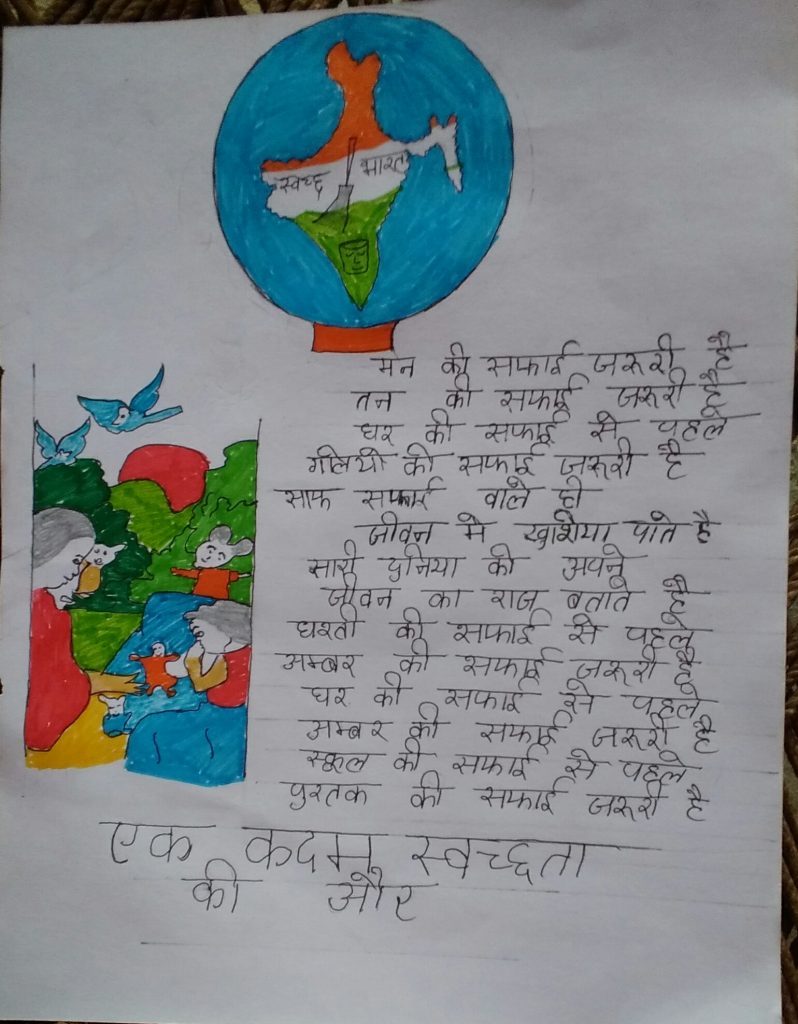 स्वच्छ भारत
मन की सफाई जरूरी है
तन की सफाई जरूरी है
घर की सफाई से पहले
गलियो की सफाई जरूरी है
साफ सफाई वाले ही
जीवन मे खुशिया पाते है
सारी दुनिया को अपने
जीवन का राज बताते है
धरती की सफाई से पहले
अम्बर की सफाई जरूरी है
घर की सफाई से पहले
अम्बर की सफाई जरूरी है
स्कूल की सफाई से पहले
पुस्तक की सफाई जरूरी है
एक कदम स्वच्छता
की और